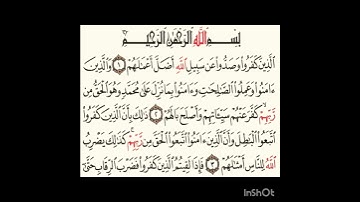 بِسْمِ اللَّهِ الرَّحْمَٰنِ الرَّحِيمِ
الَّذِينَ كَفَرُوا وَصَدُّوا عَن سَبِيلِ اللَّهِ أَضَلَّ أَعْمَالَهُمْ ١ وَالَّذِينَ
ءَامَنُوا وَعَمِلُوا الصَّالِحَاتِ وَءَامَنُوا بِمَا نُزِّلَ عَلَىٰ مُحَمَّدٍ وَهُوَ الْحَقُّ مِن
رَّبِّهِمْ كَفَّرَ عَنْهُمْ سَيِّئَاتِهِمْ وَأَصْلَحَ بَالَهُمْ ٢ ذَٰلِكَ بِأَنَّ الَّذِينَ كَفَرُوا
اتَّبَعُوا الْبَاطِلَ وَأَنَّ الَّذِينَ ءَامَنُوا اتَّبَعُوا الْحَقَّ مِن رَّبِّهِمْ كَذَٰلِكَ يَضْرِبُ
اللَّهُ لِلنَّاسِ أَمْثَالَهُمْ ٣ فَإِذَا لَقِيتُمُ الَّذِينَ كَفَرُوا فَضَرْبَ الرِّقَابِ حَتَّىٰ
InShOt